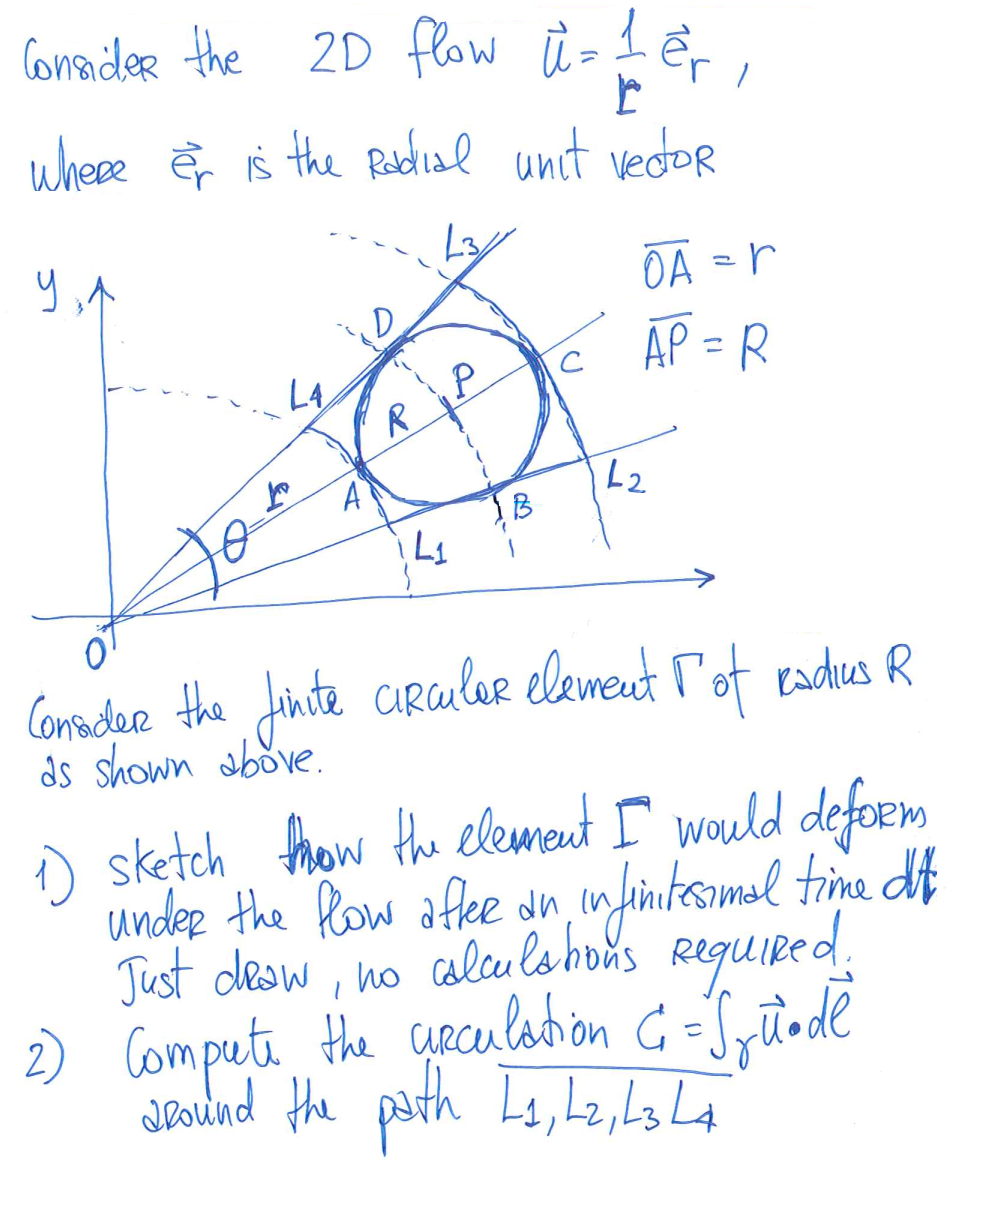 Consider the 2D flow u⃗ = 1/r e⃗r ,
where e⃗r is the Radial unit vector
L3
OA = r
y
D
AP = R
C
L4
P
R
L2
r
A
B
θ
L1
O
Consider the finite circular element Γ of radius R
as shown above.
1) sketch how the element Γ would deform
under the flow after an infinitesimal time dt
Just draw, no calculations required.
2) Compute the circulation C = ∫γ u⃗ • dℓ⃗
around the path L1, L2, L3 L4